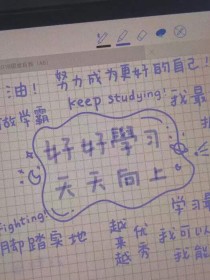 油！ 努力成为更好的自己！
keep studying! 我最
做学霸
好好學习
天天向上
Fighting! 学习最
脚踏实地 越来越优秀 我可以
我能